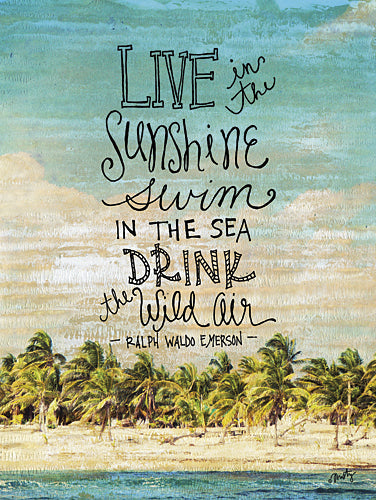 LIVE in the
Sunshine
swim
IN THE SEA
DRINK
the Wild Air
— RALPH WALDO EMERSON —